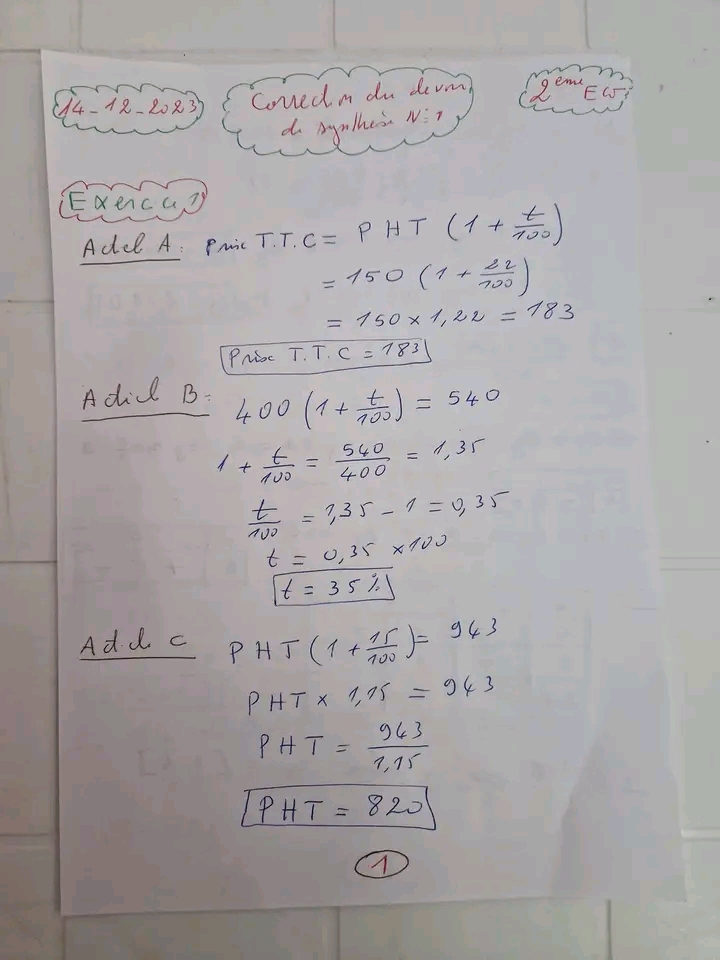 14-12-2023
Correction du devoir
de synthèse N:1
2ème ECO
Exercice 1
Article A: Prix T.T.C = PHT (1 + t/100)
= 150 (1 + 22/100)
= 150 × 1,22 = 183
Prix T.T.C = 183
Article B: 400 (1 + t/100) = 540
1 + t/100 = 540/400 = 1,35
t/100 = 1,35 - 1 = 0,35
t = 0,35 × 100
t = 35 %
Article C PHT (1 + 15/100) = 943
PHT × 1,15 = 943
PHT = 943/1,15
PHT = 820
1